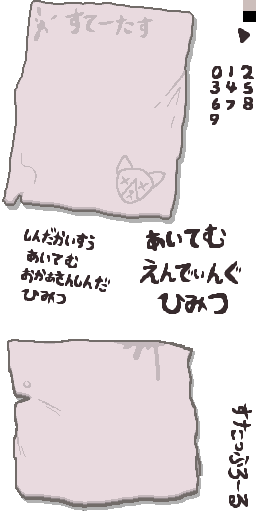 すてーたす
0 1 2
3 4 5
6 7 8
9
しんだかいすう
あいてむ
おかあさんしんだ
ひみつ
あいてむ
えんでぃんぐ
ひみつ
すたっふろーる